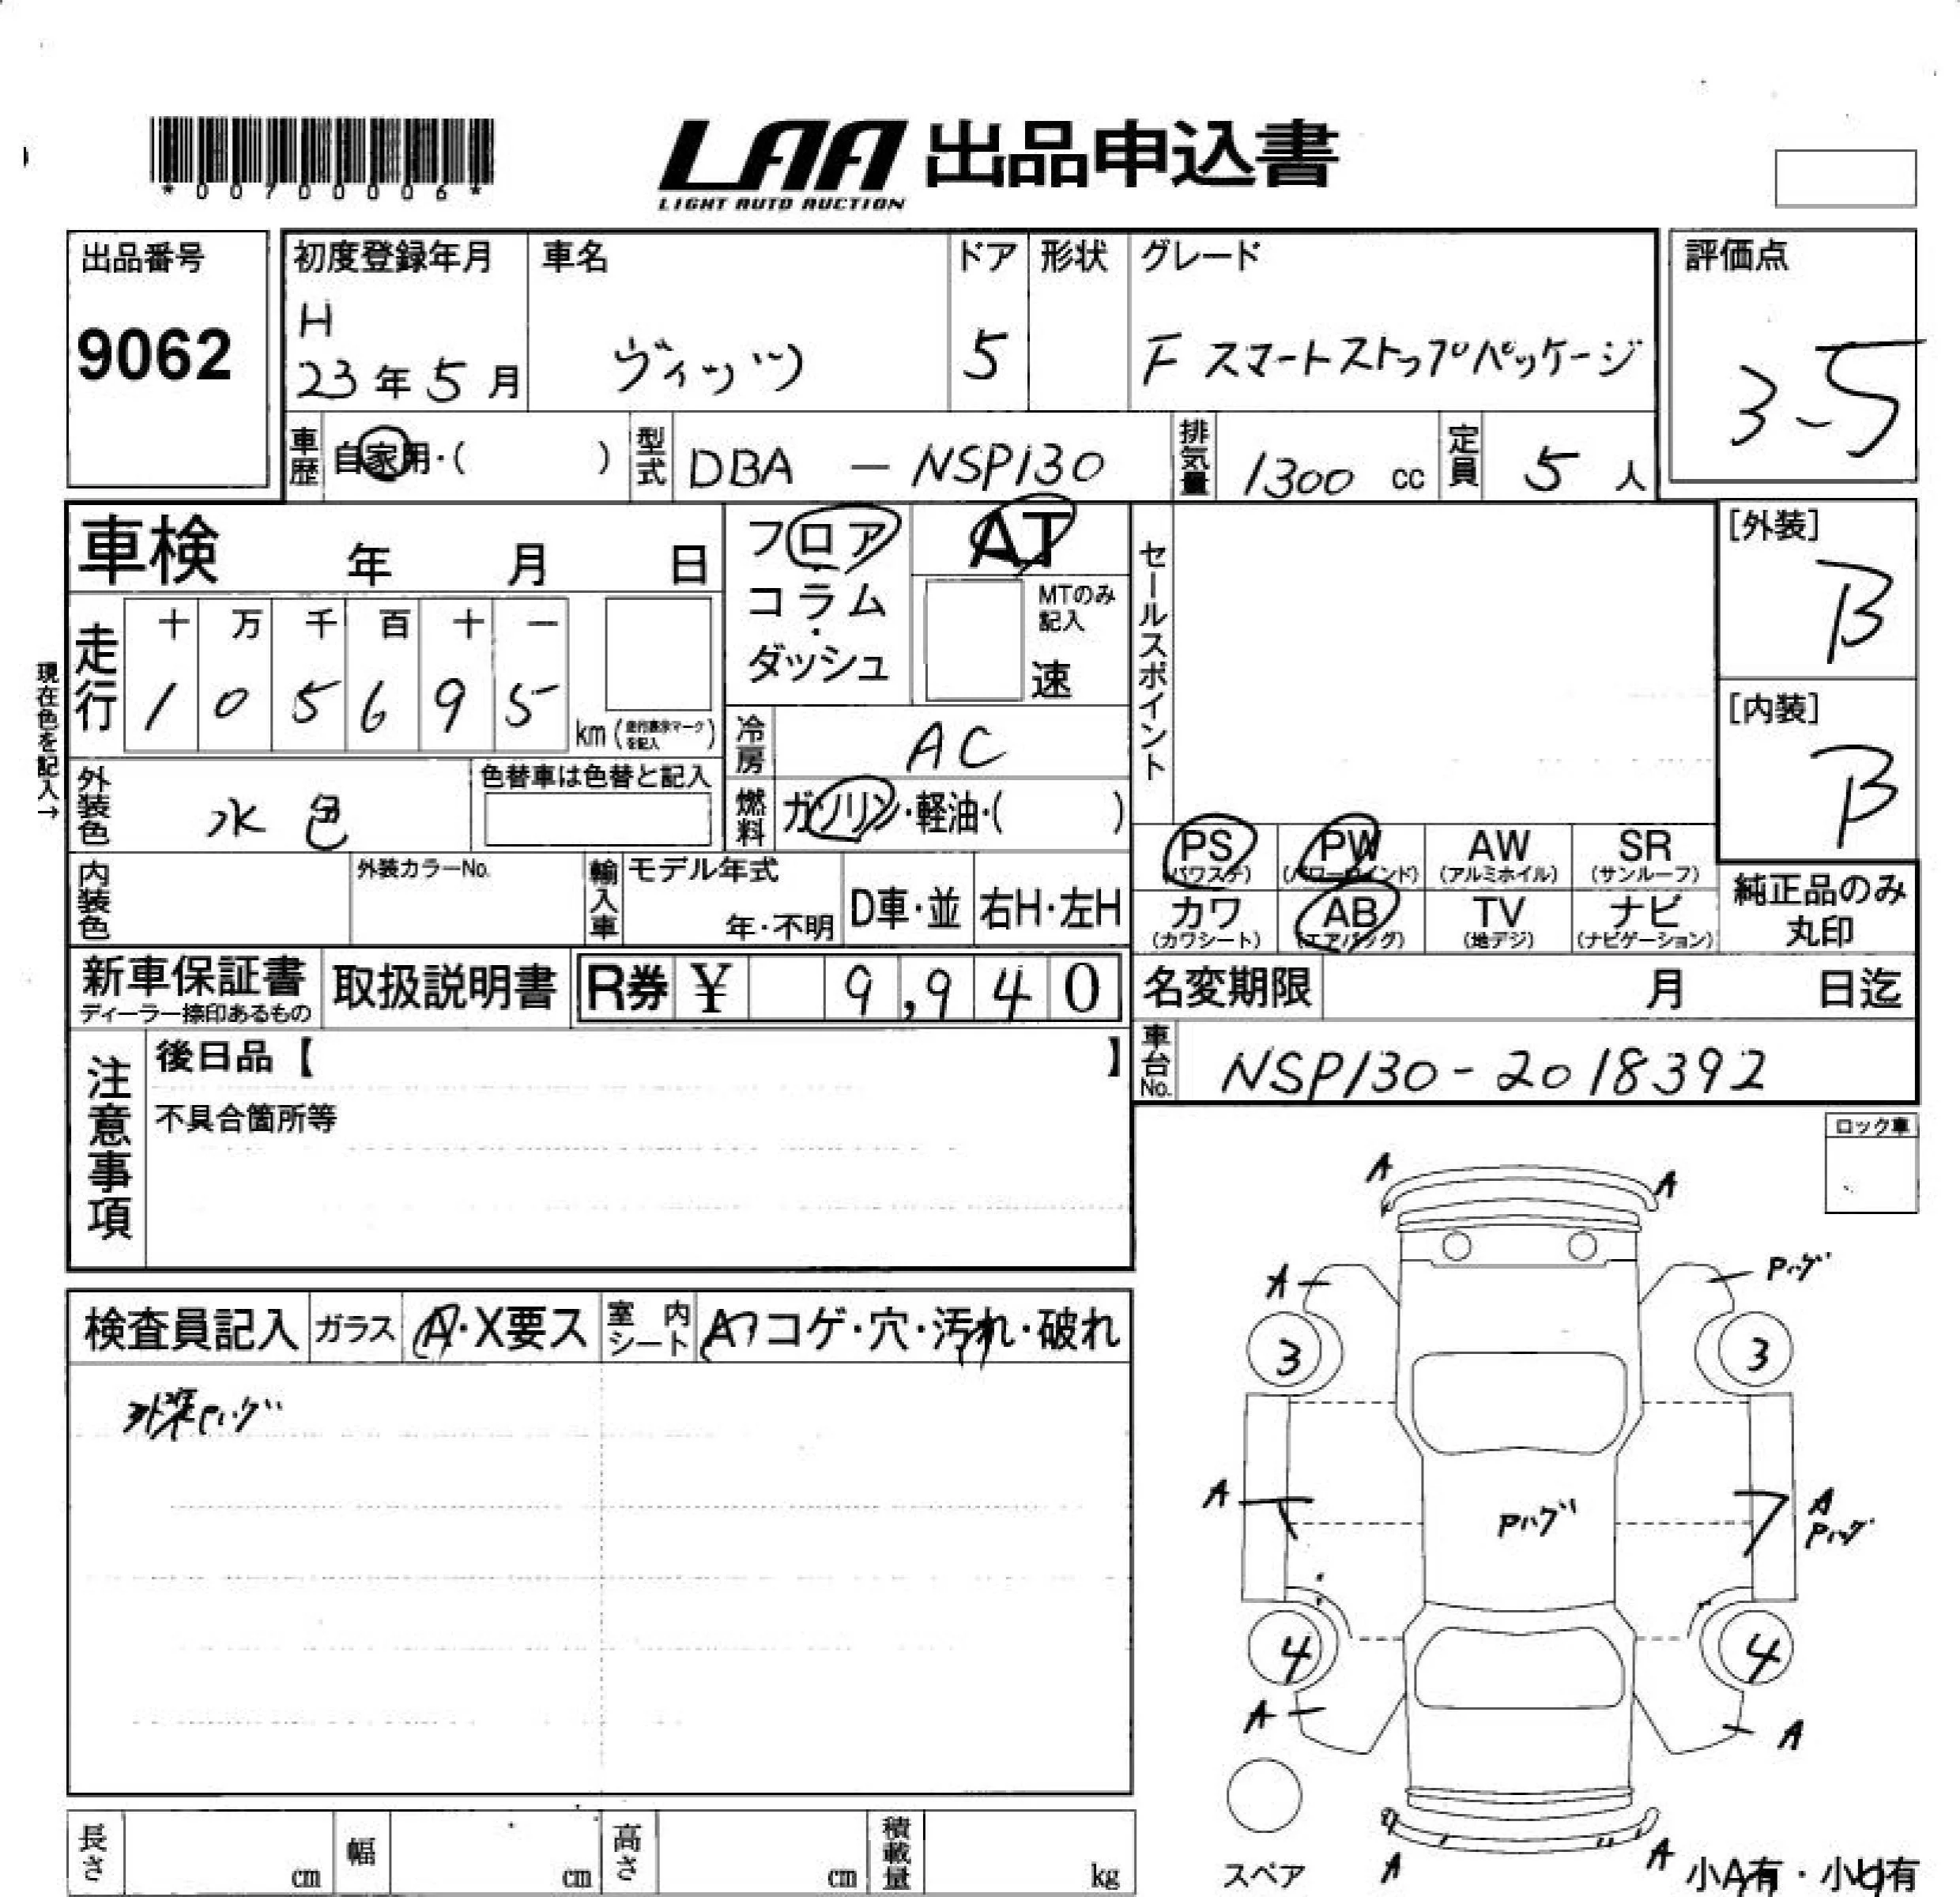 *00700006*
LAA 出品申込書
LIGHT AUTO AUCTION
出品番号
9062
初度登録年月
H
23年5月
車名
ヴィッツ
ドア
5
形状
グレード
F スマートストップパッケージ
評価点
3-5
車歴
自家用・( )
型式
DBA - NSP130
排気量
1300 cc
定員
5 人
車検 年 月 日
フロア
・
コラム
・
ダッシュ
AT
MTのみ
記入
速
セールスポイント
[外装]
B
[内装]
B
現在色を記入→
走行
十 万 千 百 十 一
1 0 5 6 9 5
km(走行表示マークを記入)
冷房
AC
外装色
水色
色替車は色替と記入
燃料
ガソリン・軽油・( )
PS
(パワステ)
PW
(パワーウインド)
AW
(アルミホイル)
SR
(サンルーフ)
内装色
外装カラーNo.
輸入車
モデル年式
年・不明
D車・並
右H・左H
カワ
(カワシート)
AB
(エアバッグ)
TV
(地デジ)
ナビ
(ナビゲーション)
純正品のみ
丸印
新車保証書
ディーラー捺印あるもの
取扱説明書
R券 ¥ 9,940
名変期限 月 日迄
注意事項
後日品【 】
不具合箇所等
車台No.
NSP130-2018392
ロック車
検査員記入
ガラス
A・X要ス
室内シート
コゲ・穴・汚れ・破れ
外装Pハゲ
A
A
A
Pハゲ
3
3
A
Pハゲ
A
Pハゲ
4
4
A
A
スペア
A
A
小A有・小U有
長さ
cm
幅
cm
高さ
cm
積載量
kg